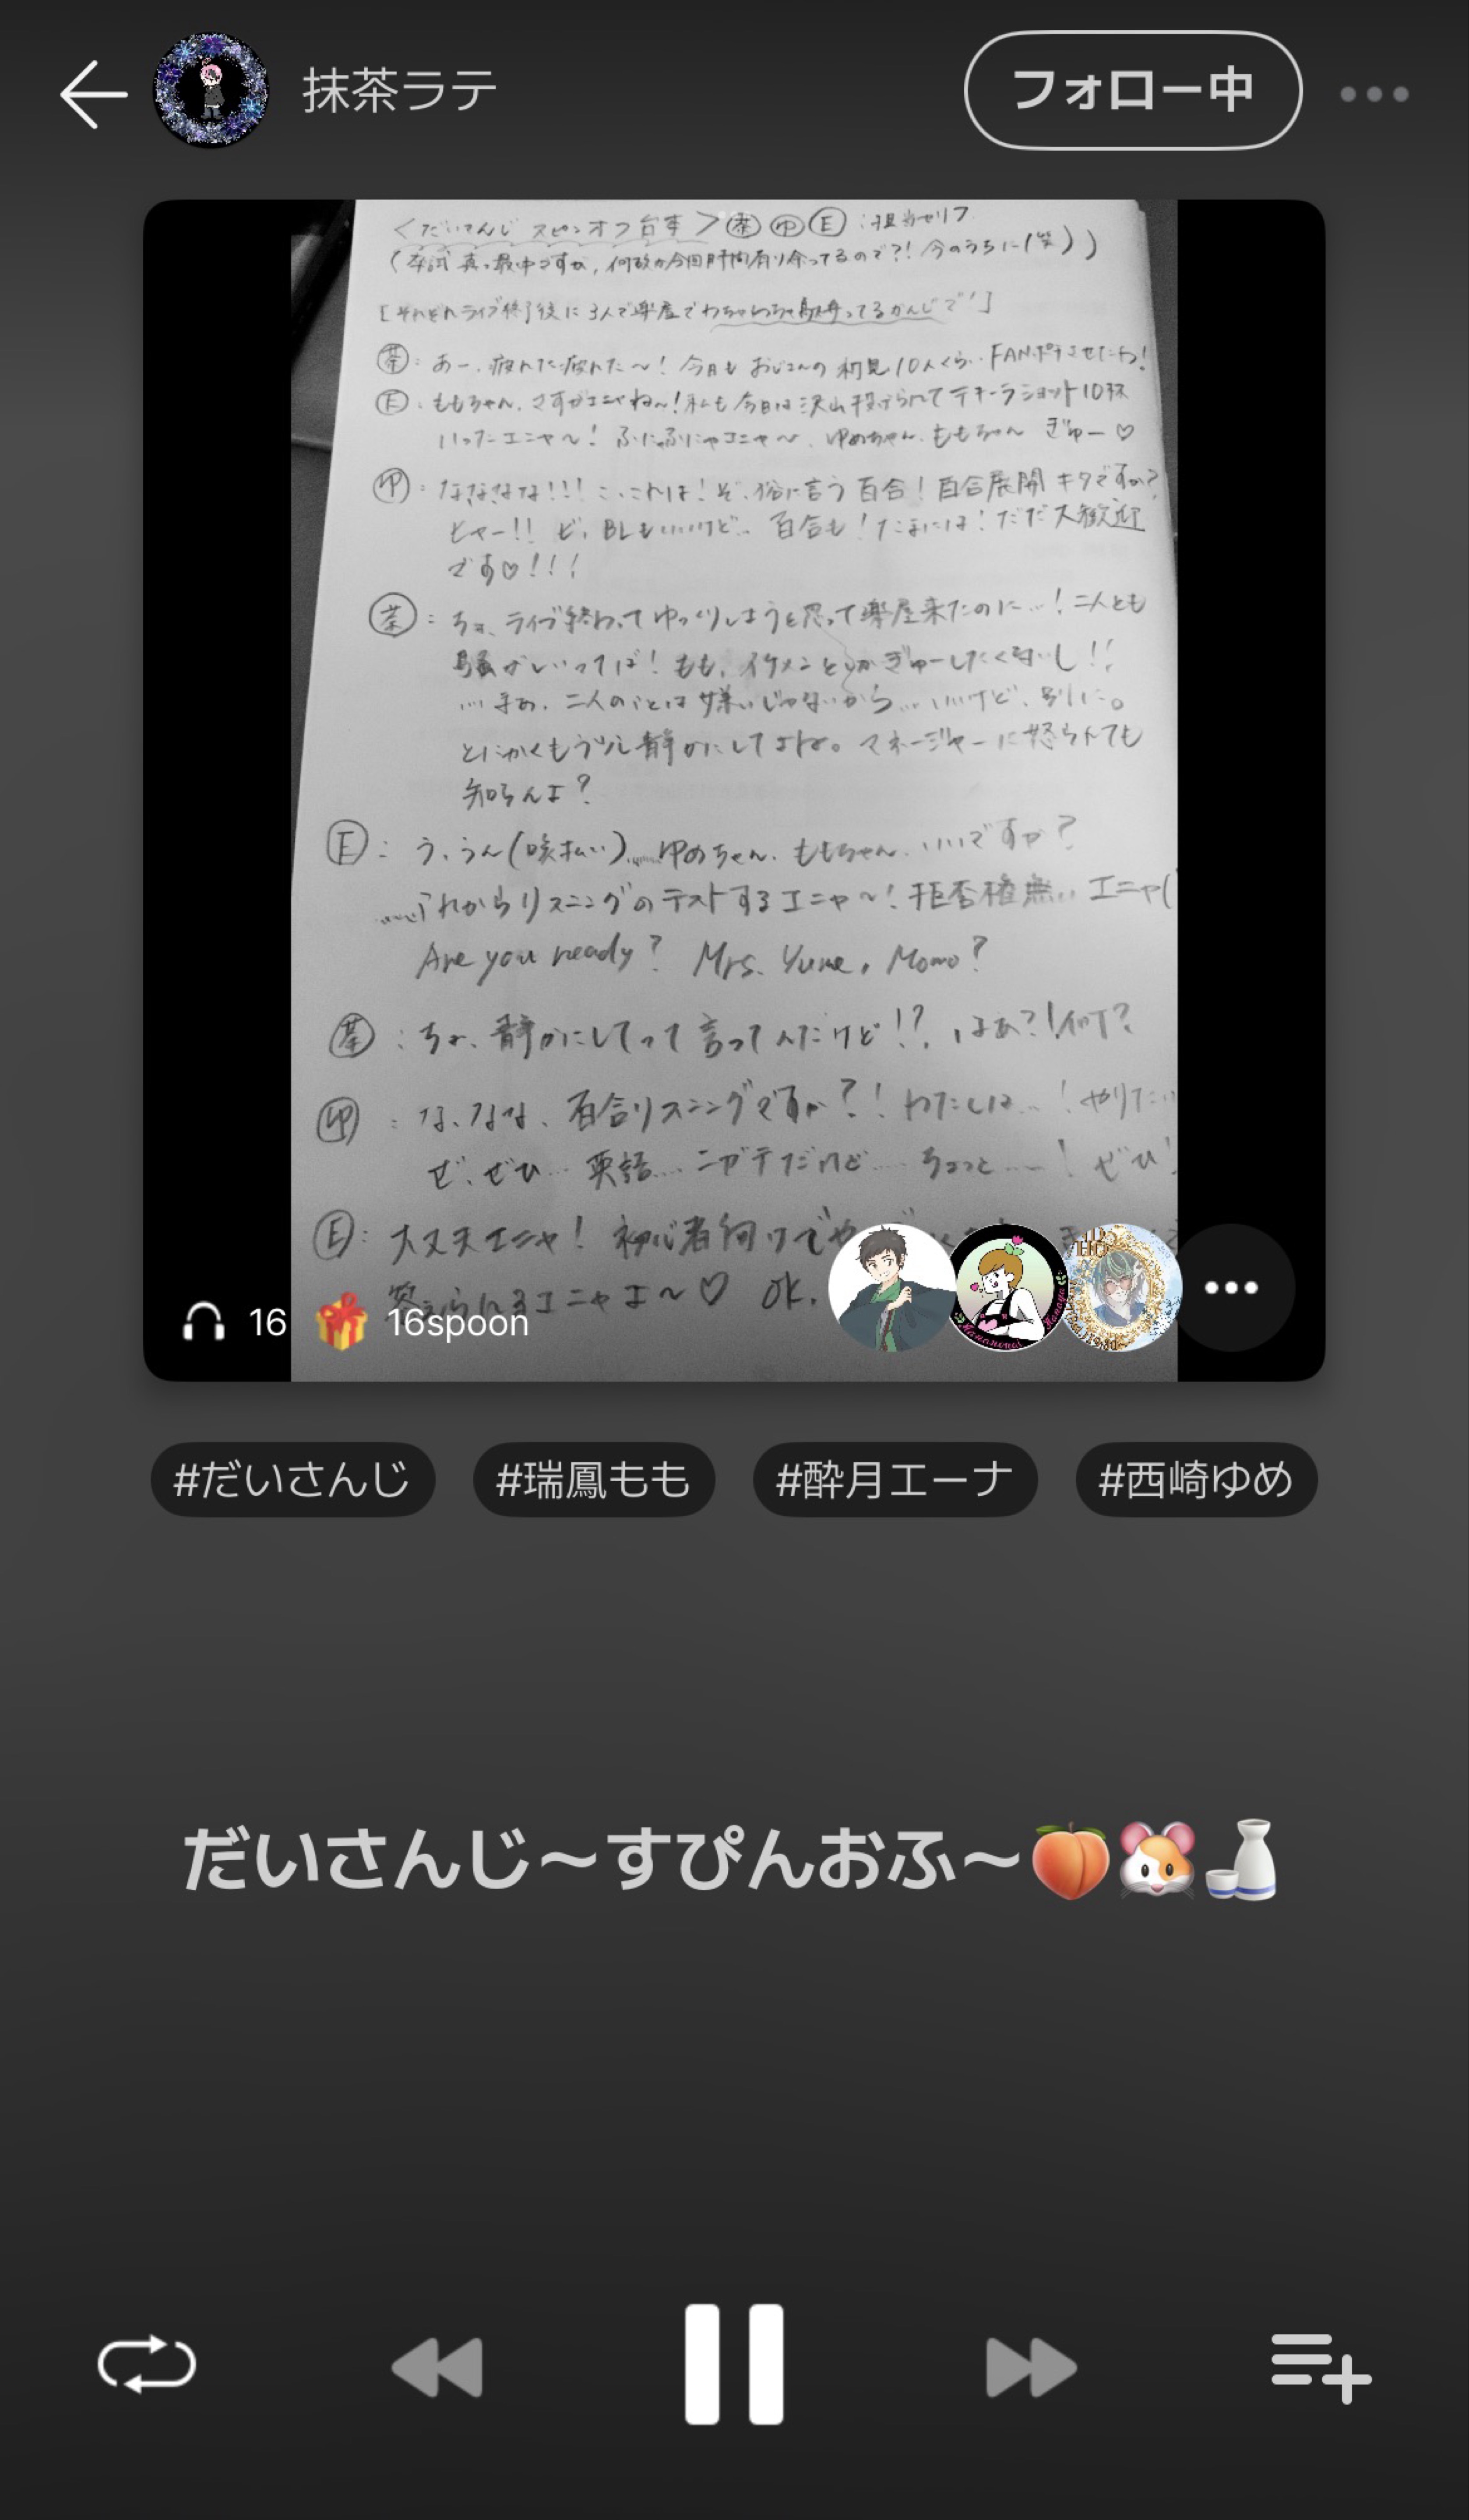 抹茶ラテ
フォロー中
<だいさんじ スピンオフ台本> 茶 ゆ E : 担当セリフ
(卒試真っ最中ですが、何故か今回時間有り余ってるので?! 今のうちに(笑))
[それぞれライブ終了後に3人で楽屋でわちゃわちゃ駄弁ってるかんじで!]
茶 : あー、疲れた疲れた〜! 今日も おじさんの 初見10人くらい FANポチさせたわ!
E : ももちゃん、さすがエニャね〜! 私も今日は沢山投げられてテキーラショット10杯
いったエニャ〜! ふにゃふにゃエニャ〜 ゆめちゃん、ももちゃん ぎゅー♡
ゆ : な、ななな!!! こ、これは! ぞ、俗に言う 百合! 百合展開 キタですか?
ヒャー!! ビ、BLもいいけど… 百合も! たまには! だだ大歓迎
です♡!!!
茶 : ちょ、ライブ終わってゆっくりしようと思って楽屋来たのに…! 二人とも
騒がしいってば! もも、イケメンとしかぎゅーしたくないし!!
… まぁ、二人のことは嫌いじゃないから… いいけど、別に。
とにかくもう少し静かにしてよね。マネージャーに怒られても
知らんよ?
E : う、うん(咳払い)…… ゆめちゃん、ももちゃん、いいですか?
……これからリスニングのテストするエニャ〜! 拒否権無… エニャ(
Are you ready? Mrs. Yume, Momo?
茶 : ちょ、静かにしてって言ってんだけど!? はぁ?! 何?
ゆ : な、なな、百合リスニングですか?! わたしは…! やりたい
ぜ、ぜひ… 英語… ニガテだけど…… ちょっと……! ぜひ!
E : 大丈夫エニャ! 初心者向けでや
答えられるエニャよ〜♡ OK.
16 16spoon
#だいさんじ #瑞鳳もも #酔月エーナ #西崎ゆめ
だいさんじ〜すぴんおふ〜🍑🐹🍶